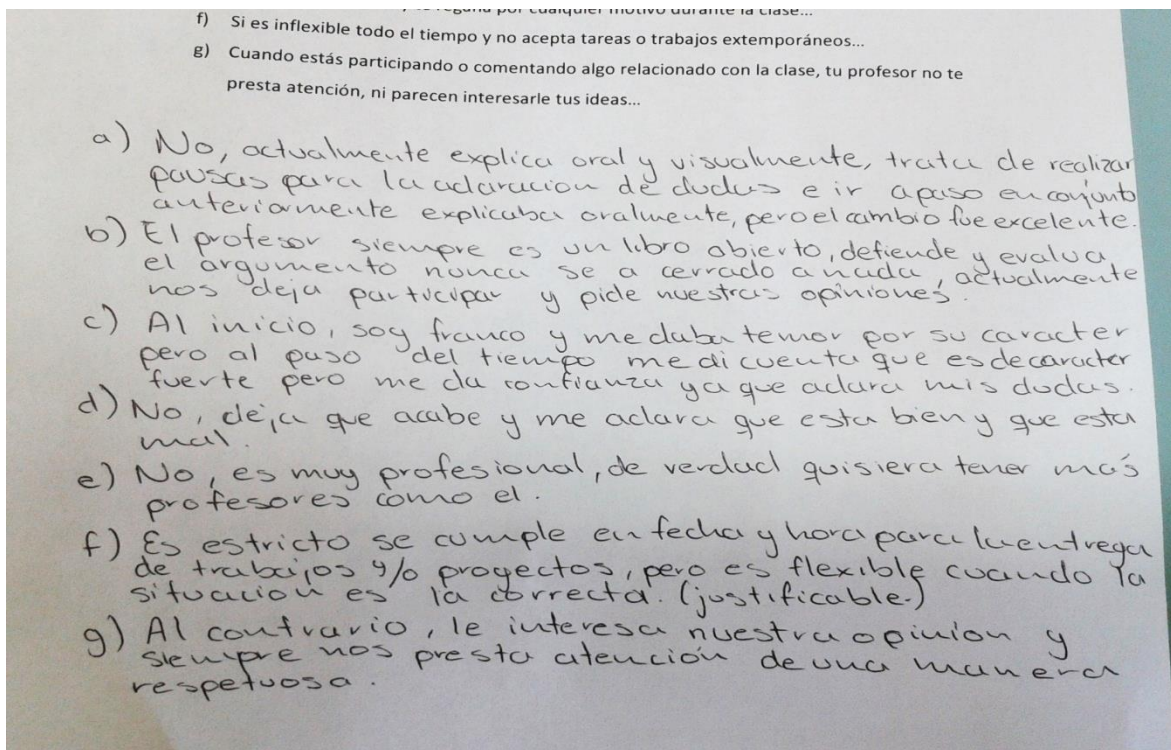 regaña por cualquier motivo durante la clase...
f) Si es inflexible todo el tiempo y no acepta tareas o trabajos extemporáneos...
g) Cuando estás participando o comentando algo relacionado con la clase, tu profesor no te
presta atención, ni parecen interesarle tus ideas...
a) No, actualmente explica oral y visualmente, trata de realizar
pausas para la aclaracion de dudas e ir a paso en conjunto
anteriormente explicaba oralmente, pero el cambio fue excelente.
b) El profesor siempre es un libro abierto, defiende y evalua
el argumento nunca se a cerrado a nada, actualmente
nos deja participar y pide nuestras opiniones.
c) Al inicio, soy franco y me daba temor por su caracter
pero al paso del tiempo me di cuenta que es de caracter
fuerte pero me da confianza ya que aclara mis dudas.
d) No, deja que acabe y me aclara que esta bien y que esta
mal.
e) No, es muy profesional, de verdad quisiera tener más
profesores como el.
f) Es estricto se cumple en fecha y hora para la entrega
de trabajos y/o proyectos, pero es flexible cuando la
situacion es la correcta. (justificable.)
g) Al contrario, le interesa nuestra opinion y
siempre nos presta atención de una manera
respetuosa.